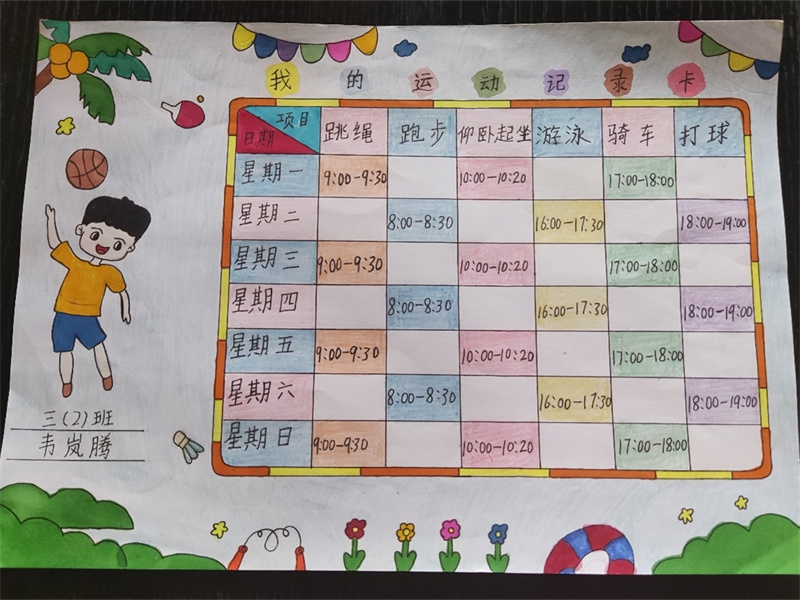 我的运动记录卡
项目 日期 跳绳 跑步 仰卧起坐 游泳 骑车 打球
星期一 9:00-9:30 10:00-10:20 17:00-18:00
星期二 8:00-8:30 16:00-17:30 18:00-19:00
星期三 9:00-9:30 10:00-10:20 17:00-18:00
星期四 8:00-8:30 16:00-17:30 18:00-19:00
星期五 9:00-9:30 10:00-10:20 17:00-18:00
星期六 8:00-8:30 16:00-17:30 18:00-19:00
星期日 9:00-9:30 10:00-10:20 17:00-18:00
三(2)班
韦岚腾